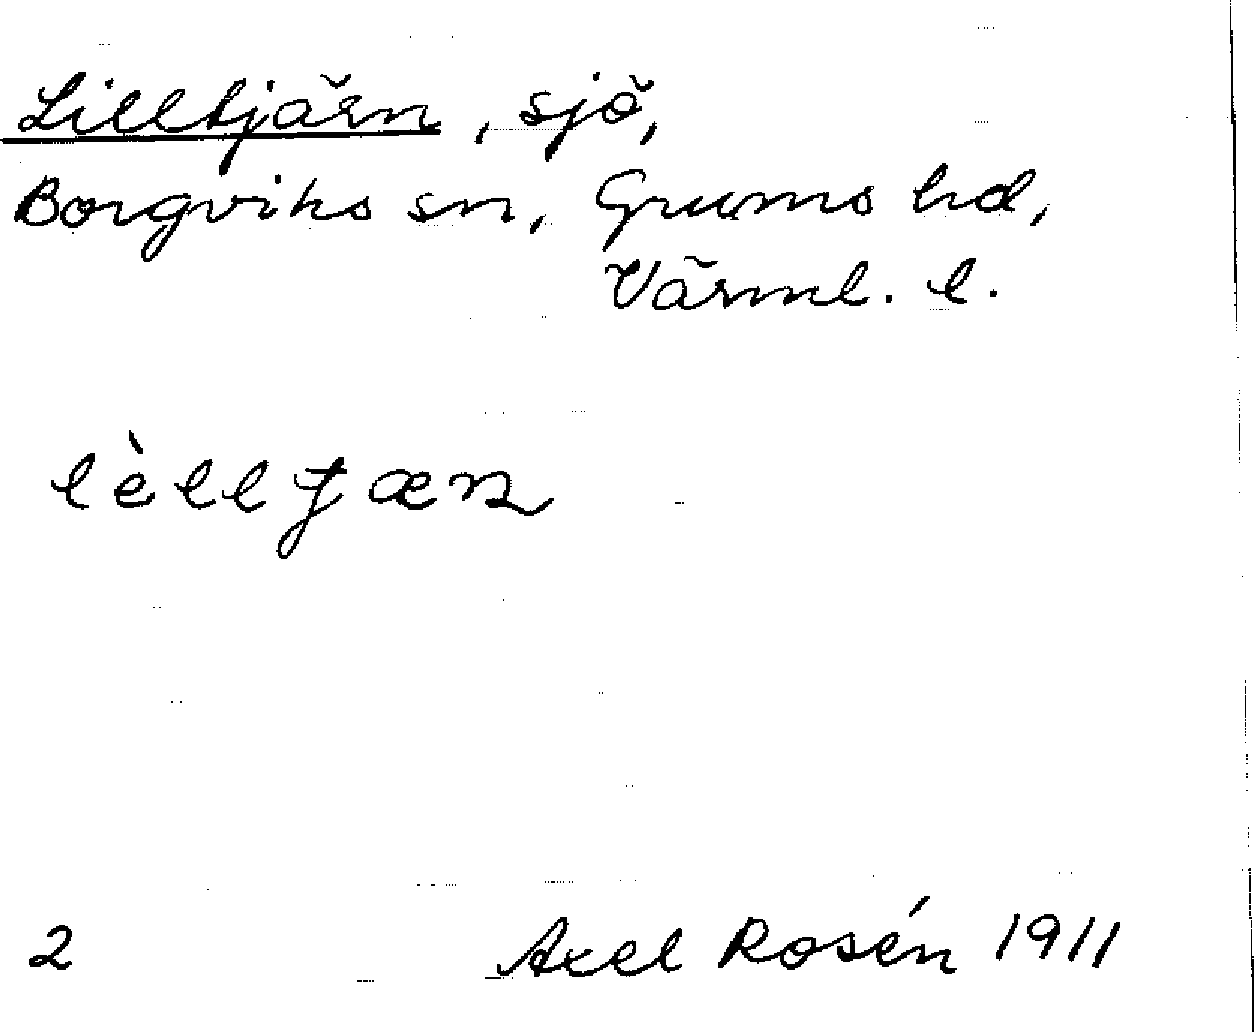 Lilltjärn, sjö,
Borgviks sn, Grums hd,
Värml. l.
lèllʄæn
2 Axel Rosén 1911